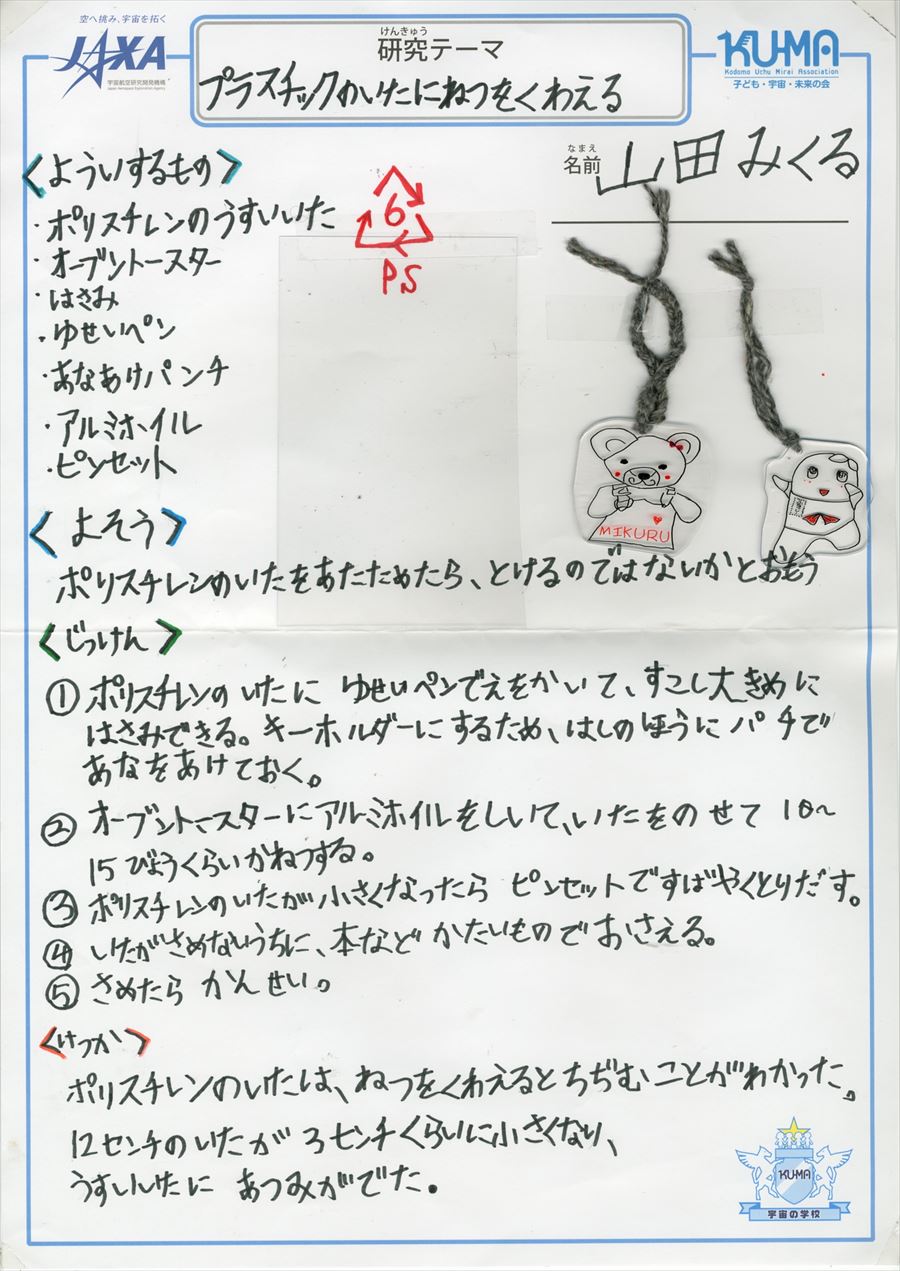 空へ挑み、宇宙を拓く
JAXA
宇宙航空研究開発機構
Japan Aerospace Exploration Agency
けんきゅう
研究テーマ
プラスチックのいたにねつをくわえる
KU-MA
Kodomo Uchu Mirai Association
子ども・宇宙・未来の会
なまえ
名前 山田みくる
<よういするもの>
・ポリスチレンのうすいいた
・オーブントースター
・はさみ
・ゆせいペン
・あなあけパンチ
・アルミホイル
・ピンセット
6
PS
MIKURU
<よそう>
ポリスチレンのいたをあたためたら、とけるのではないかとおもう
<じっけん>
① ポリスチレンのいたに ゆせいペンでえをかいて、すこし大きめに
はさみできる。キーホルダーにするため、はしのほうにパチで
あなをあけておく。
② オーブントースターにアルミホイルをしいて、いたをのせて 10~
15びょうくらいかねつする。
③ ポリスチレンのいたが小さくなったら ピンセットですばやくとりだす。
④ いたがさめないうちに、本など かたいもので おさえる。
⑤ さめたら かんせい。
<けっか>
ポリスチレンのいたは、ねつをくわえるとちぢむことがわかった。
12センチのいたが 3センチくらいに小さくなり、
うすいいたに あつみがでた。
KU-MA
宇宙の学校